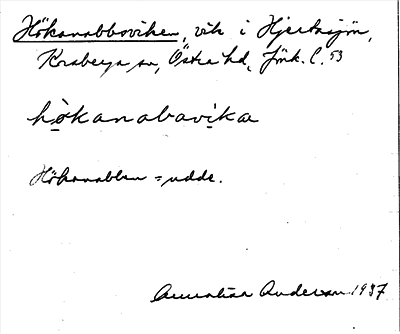 Hökanabboviken, vik i Hjertasjön,
Korsberga sn, Östra hd, Jönk. l. 53
hökanabavika
Hökanabben = udde.
Andersson 1937